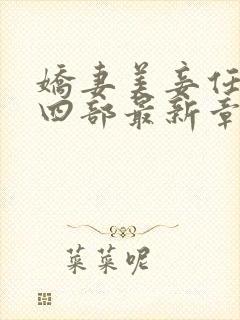 嬌妻美妾任
四部最新章
菜菜呢